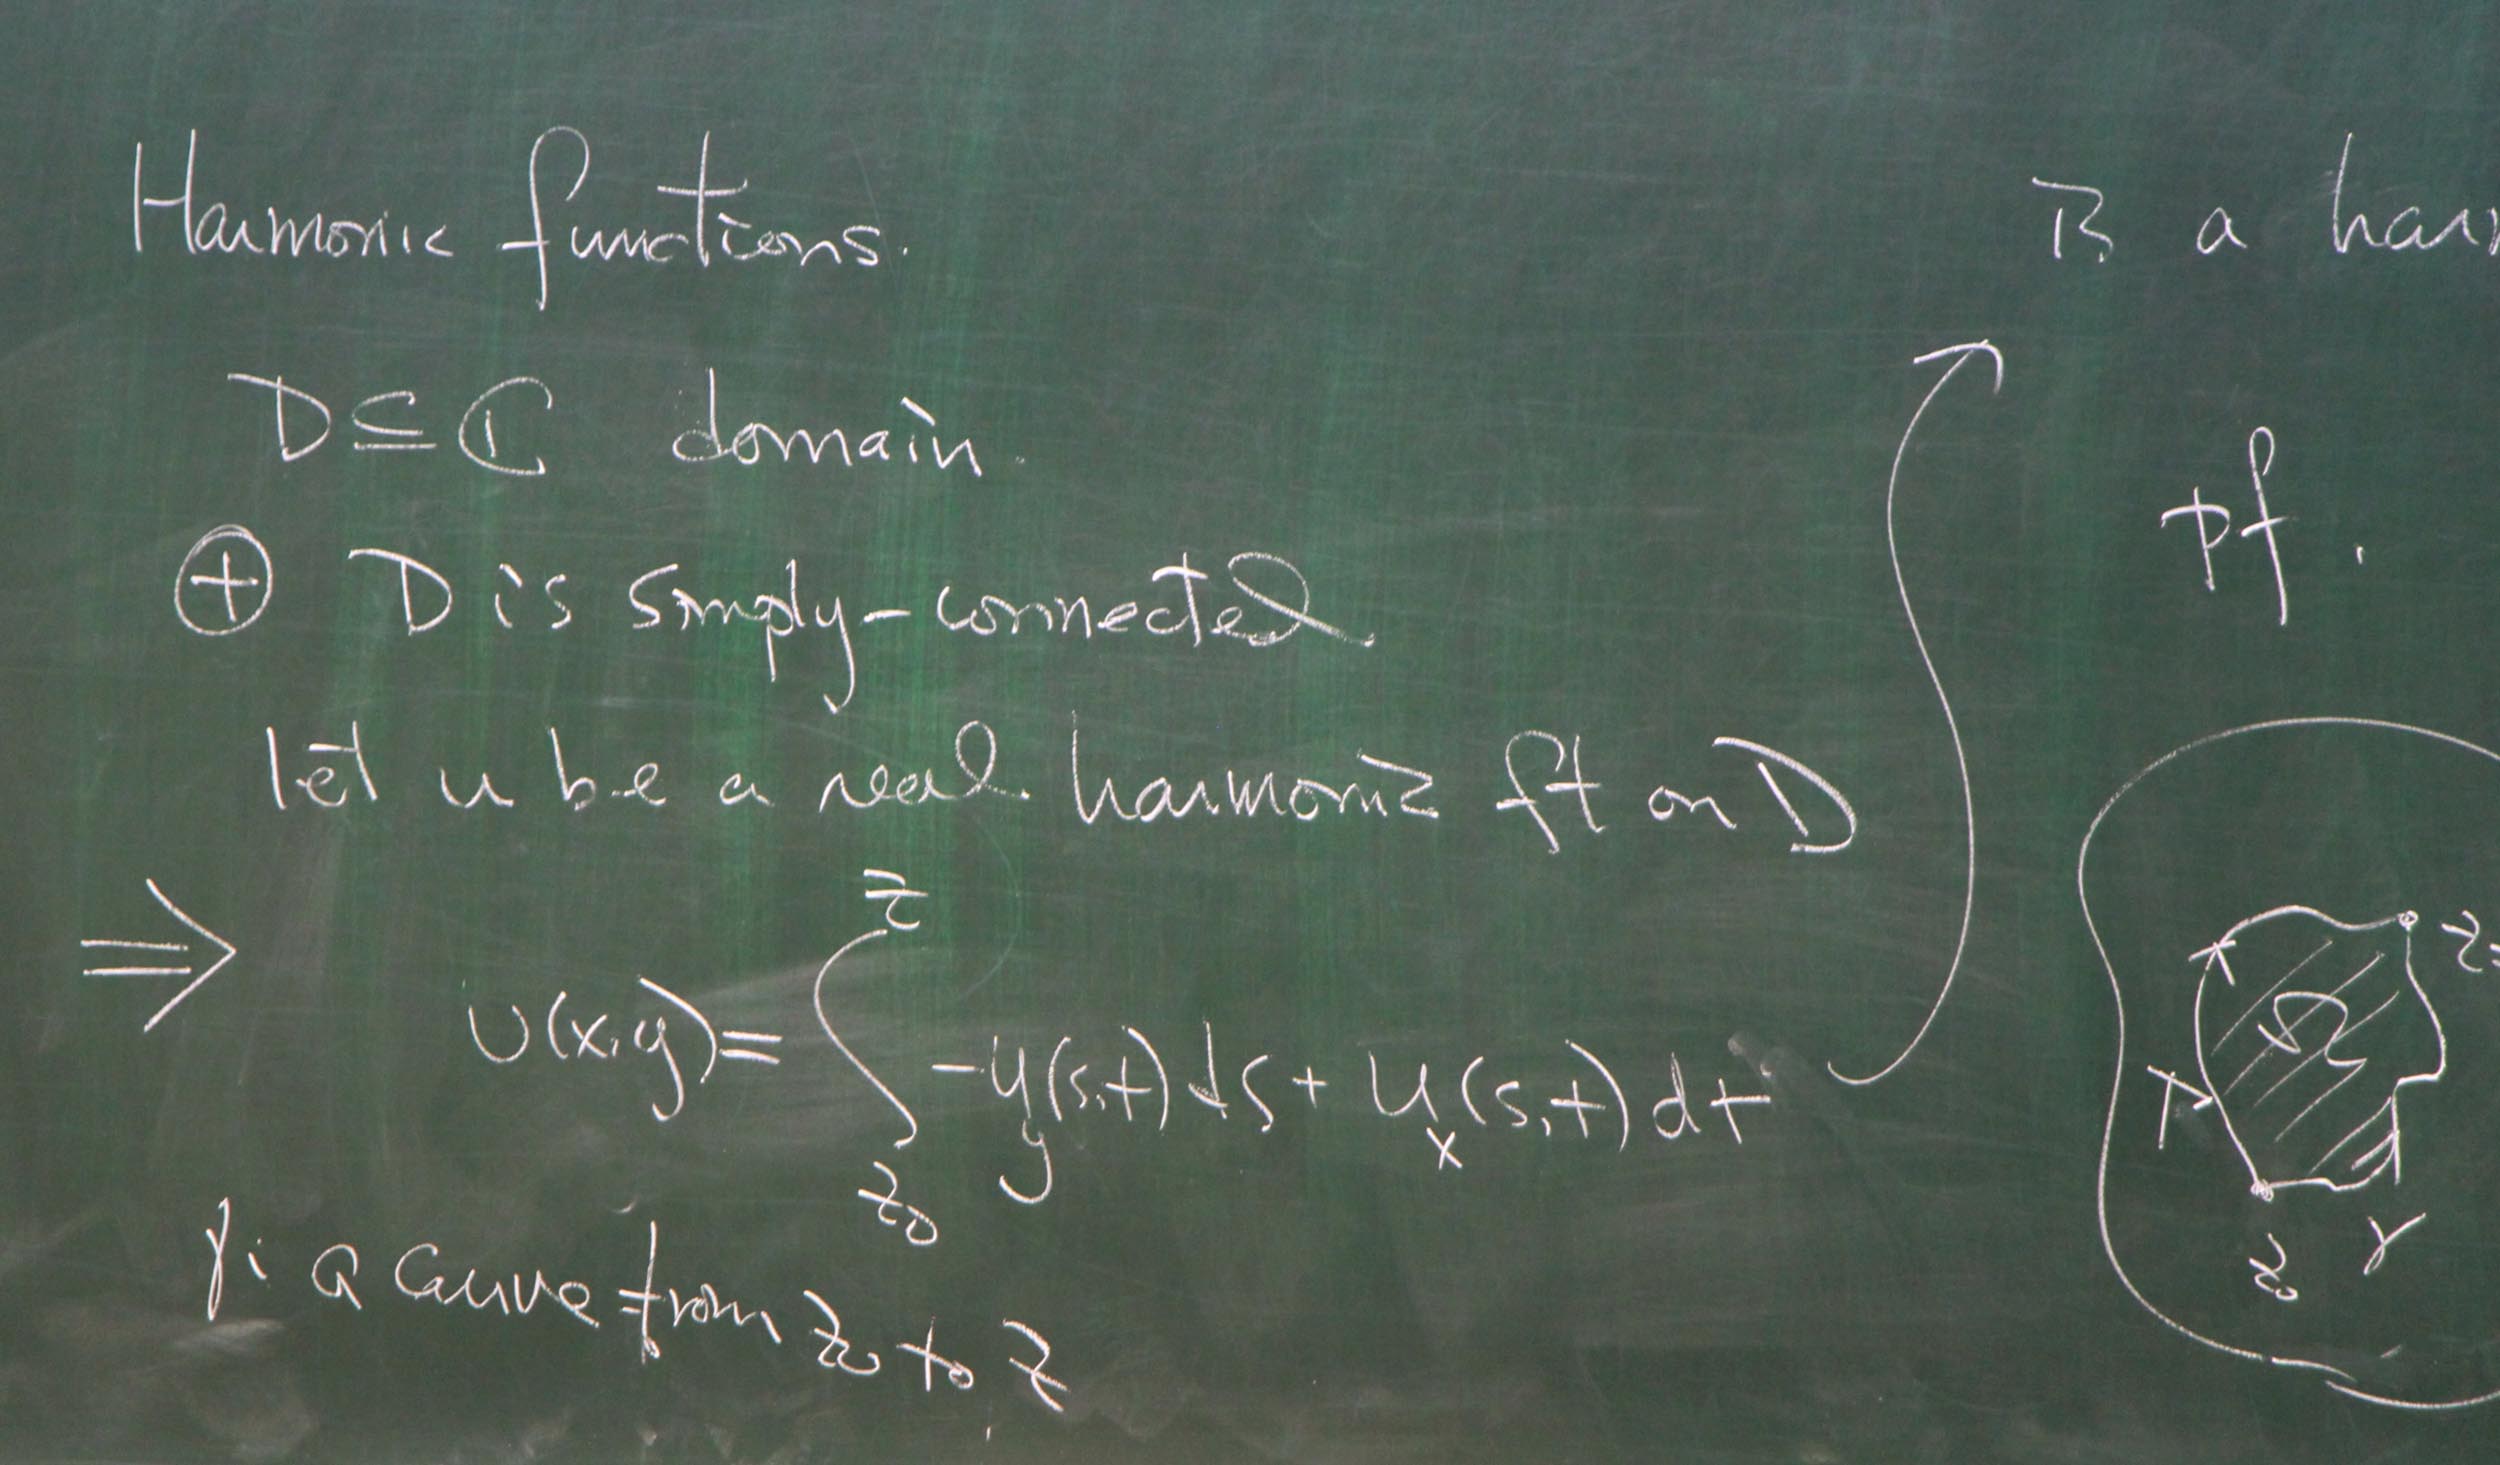 Harmonic functions.
D ⊆ ℂ domain.
⊕ D is simply-connected.
let u be a real harmonic ft on D
⇒ υ(x,y) = ∫_{z₀}^{z} -u_y(s,t) ds + u_x(s,t) dt
γ: a curve from z₀ to z
is a har
pf.
z=
Ω
Γ
z₀ γ